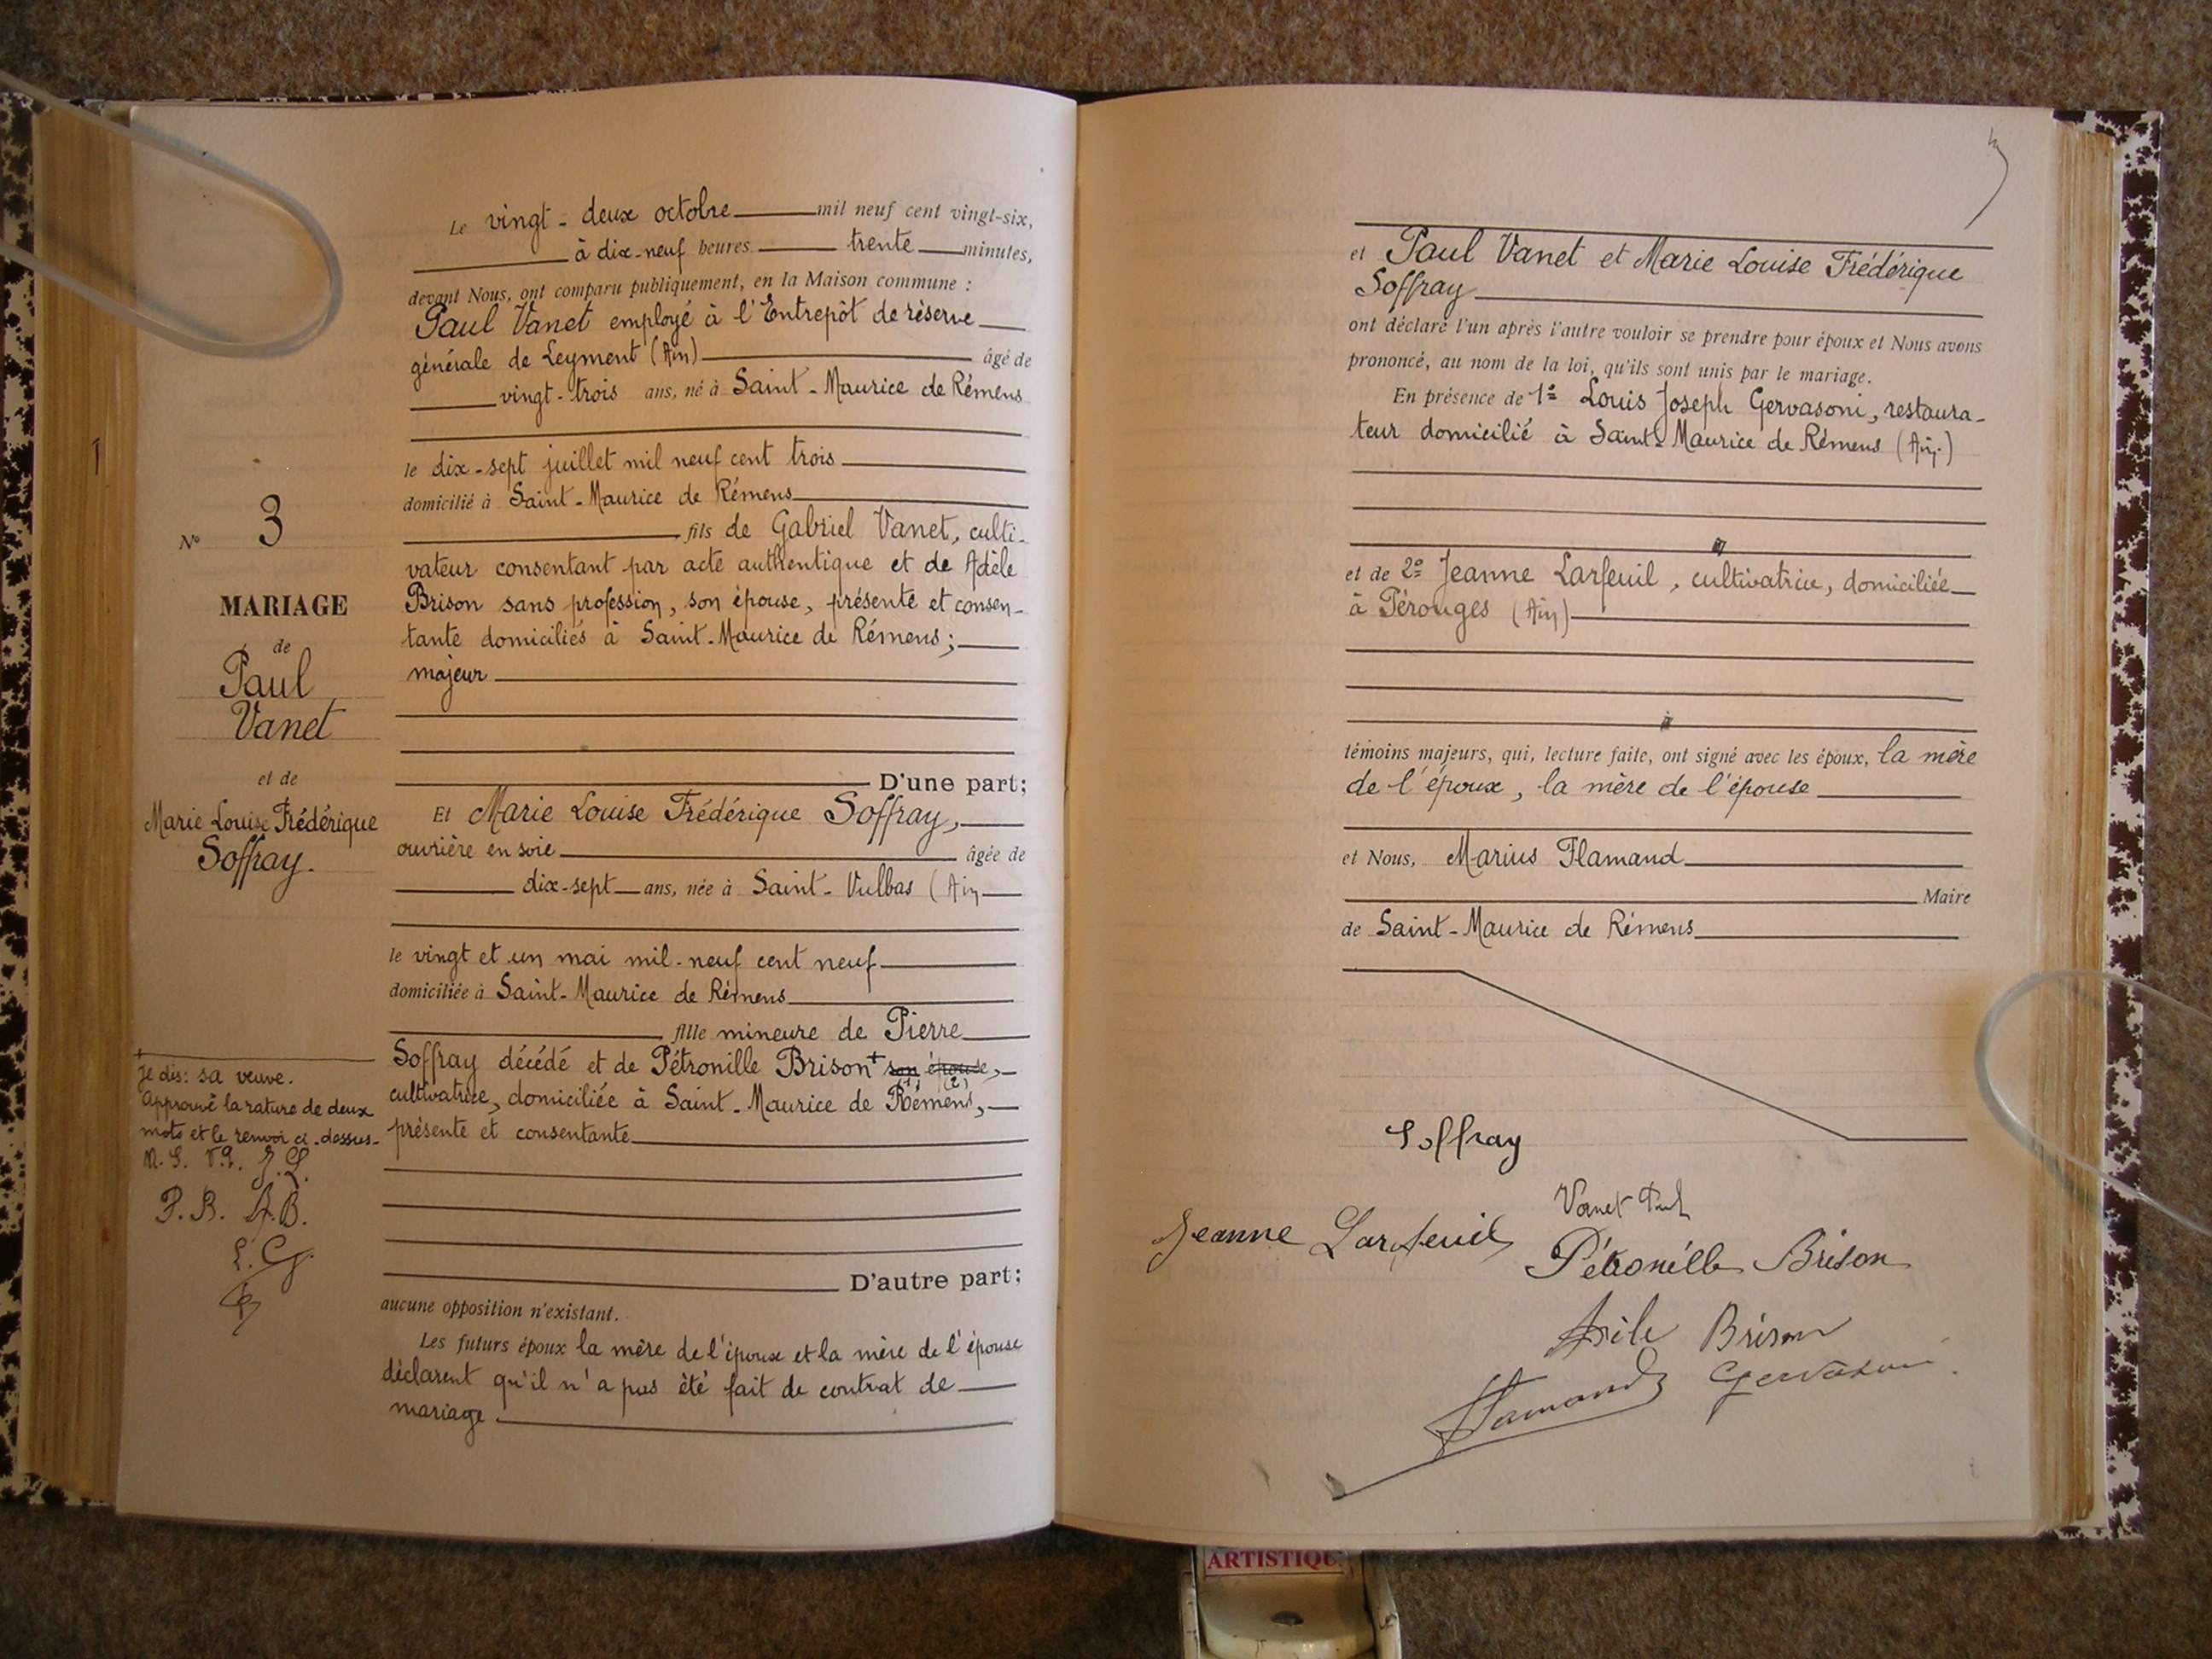 N° 3
MARIAGE
de
Paul
Vanet
et de
Marie Louise Frédérique
Soffray.
+
Je dis: sa veuve.
Approuvé la rature de deux
mots et le renvoi ci-dessus.
M. S. V.P. J. L.
P. B. A. B.
L. G.
Le vingt-deux octobre mil neuf cent vingt-six,
à dix-neuf heures trente minutes,
devant Nous, ont comparu publiquement, en la Maison commune :
Paul Vanet employé à l'Entrepôt de réserve
générale de Leyment (Ain) âgé de
vingt-trois ans, né à Saint-Maurice de Rémens
le dix-sept juillet mil neuf cent trois
domicilié à Saint-Maurice de Rémens
fils de Gabriel Vanet, culti-
vateur consentant par acte authentique et de Adèle
Brison sans profession, son épouse, présente et consen-
tante domiciliés à Saint-Maurice de Rémens;
majeur
D'une part;
Et Marie Louise Frédérique Soffray,
ouvrière en soie âgée de
dix-sept ans, née à Saint-Vulbas (Ain
le vingt et un mai mil-neuf cent neuf
domiciliée à Saint-Maurice de Rémens
fille mineure de Pierre
Soffray décédé et de Pétronille Brison + son épouse,
(1) (2)
cultivatrice, domiciliée à Saint-Maurice de Rémens,
présente et consentante
D'autre part;
aucune opposition n'existant.
Les futurs époux la mère de l'époux et la mère de l'épouse
déclarent qu'il n'a pas été fait de contrat de
mariage.
et Paul Vanet et Marie Louise Frédérique
Soffray
ont déclaré l'un après l'autre vouloir se prendre pour époux et Nous avons
prononcé, au nom de la loi, qu'ils sont unis par le mariage.
En présence de 1° Louis Joseph Gervasoni, restaura-
teur domicilié à Saint-Maurice de Rémens (Ain)
et de 2° Jeanne Larfeuil, cultivatrice, domiciliée
à Pérouges (Ain)
témoins majeurs, qui, lecture faite, ont signé avec les époux, la mère
de l'époux, la mère de l'épouse
et Nous, Marius Flamand
Maire
de Saint-Maurice de Rémens
Soffray
Vanet Paul
Jeanne Larfeuil
Pétronille Brison
Brison
Flamand Gervasoni
ARTISTIQU